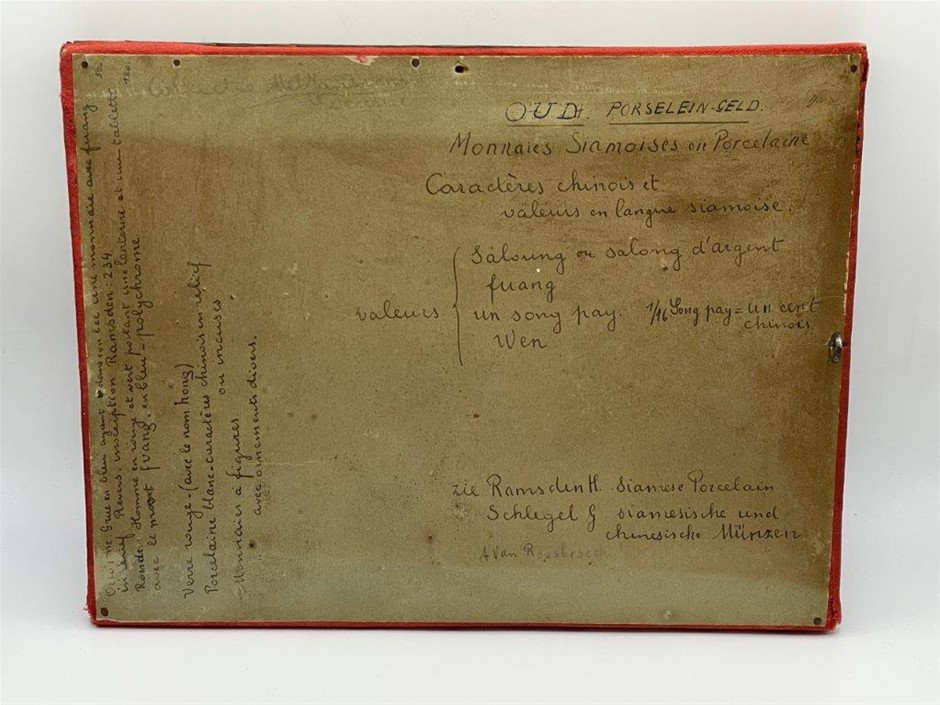 OUD PORSELEIN-GELD.
Monnaies Siamoises en Porcelaine
Caractères chinois et
valeurs en langue siamoise.
valeurs { Saloung ou salong d'argent
fuang
un song pay. 1/16 Song pay = un cent chinois
Wen
zie Ramsden H. Siamese Porcelain
Schlegel G siamesische und
chinesische Münzen
A Van Roosbroeck
Grue en bleu ayant dans son bec une monnaie avec fuang
en relief Revers. inscription Ramsden: 234
Ramsden. Homme en rouge et vert portant une lanterne et une tablette
avec le mot fuang. en bleu-polychrome
Verre rouge-(avec le nom hong)
Porcelaine blanc-caractères chinois en relief
ou incuses
Monnaies à figures
avec ornements divers.